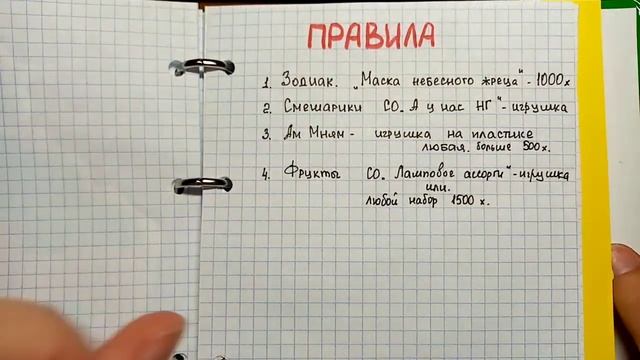 ПРАВИЛА
1. Зодиак. „Маска небесного жреца" - 1000х
2. Смешарики СО. А у нас НГ" - игрушка
3. Ам Ням - игрушка на пластике
любая. больше 500х.
4. Фрукты СО. Ламповое ассорти" - игрушка
или.
любой набор 1500х.